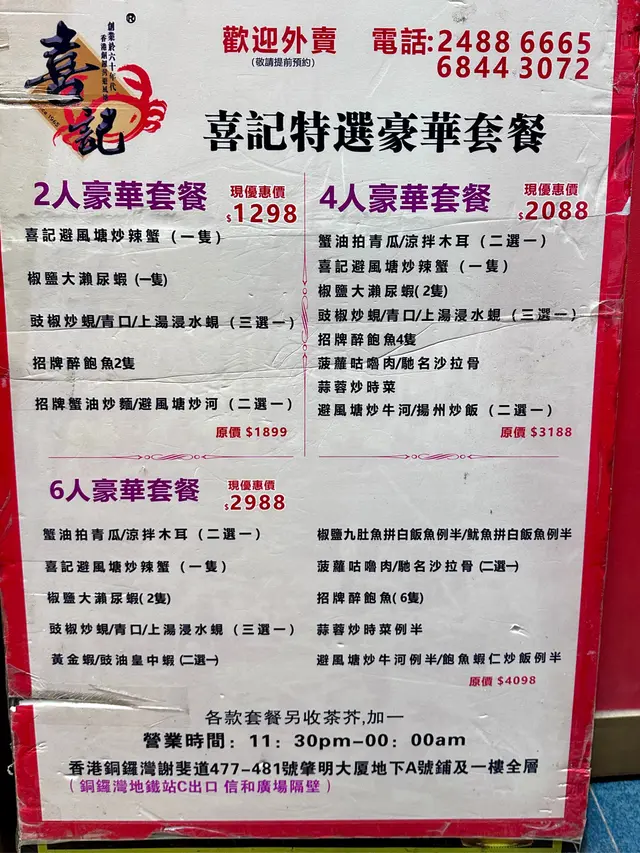 創業於六十年代
喜記
®
歡迎外賣 電話:2488 6665
(敬請提前預約) 6844 3072
喜記特選豪華套餐
2人豪華套餐 現優惠價 $1298
喜記避風塘炒辣蟹（一隻）
椒鹽大瀨尿蝦 (一隻)
豉椒炒蜆/青口/上湯浸水蜆（三選一）
招牌醉鮑魚2隻
招牌蟹油炒麵/避風塘炒河（二選一）
原價 $1899
4人豪華套餐 現優惠價 $2088
蟹油拍青瓜/涼拌木耳（二選一）
喜記避風塘炒辣蟹（一隻）
椒鹽大瀨尿蝦( 2隻)
豉椒炒蜆/青口/上湯浸水蜆（三選一）
招牌醉鮑魚4隻
菠蘿咕嚕肉/馳名沙拉骨
蒜蓉炒時菜
避風塘炒牛河/揚州炒飯（二選一）
原價 $3188
6人豪華套餐 現優惠價 $2988
蟹油拍青瓜/涼拌木耳（二選一）
喜記避風塘炒辣蟹（一隻）
椒鹽大瀨尿蝦( 2隻)
豉椒炒蜆/青口/上湯浸水蜆（三選一）
黃金蝦/豉油皇中蝦 (二選一)
椒鹽九肚魚拼白飯魚例半/魷魚拼白飯魚例半
菠蘿咕嚕肉/馳名沙拉骨 (二選一)
招牌醉鮑魚( 6隻)
蒜蓉炒時菜例半
避風塘炒牛河例半/鮑魚蝦仁炒飯例半
原價 $4098
各款套餐另收茶芥,加一
營業時間：11：30pm-00：00am
香港銅鑼灣謝斐道477-481號肇明大厦地下A號鋪及一樓全層
（銅鑼灣地鐵站C出口 信和廣場隔壁）